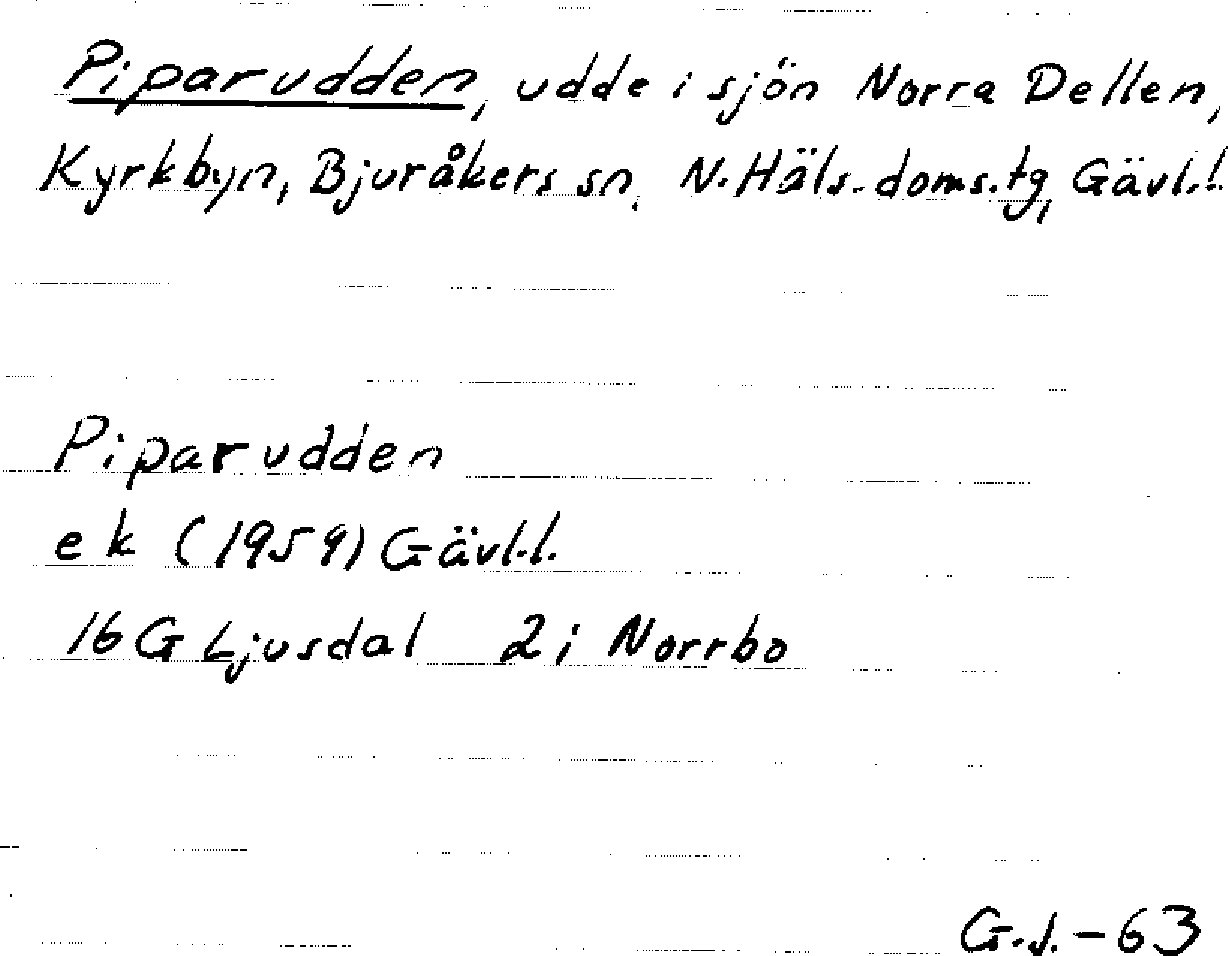 Piparudden, udde i sjön Norra Dellen,
Kyrkbyn, Bjuråkers sn, N. Häls. doms. tg, Gävl. l.
Piparudden
ek (1959) Gävl. l.
16 G Ljusdal 2 i Norrbo
G. J. - 63